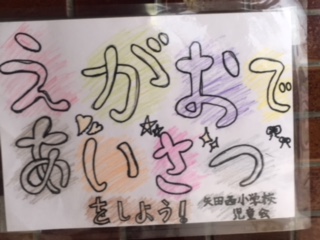 えがおで
あいさつ
をしよう！
矢田西小学校
児童会